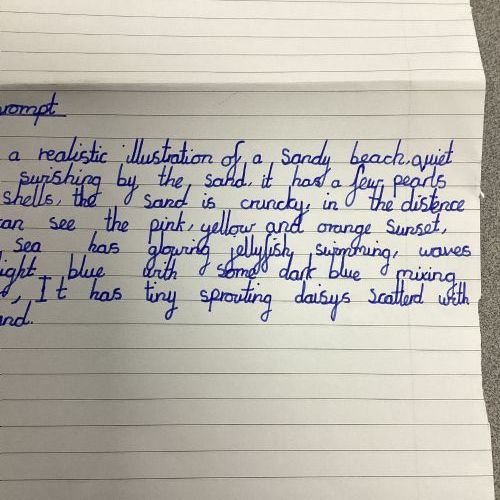 rompt
a realistic illustration of a sandy beach, quiet
swishing by the sand. it has a few pearls
shells, the sand is cruncky, in the distence
an see the pink, yellow and orange sunset,
sea has glowing jellyfish swimming, waves
ight blue with some dark blue mixing
, It has tiny sprouting daisys scatterd with
and.